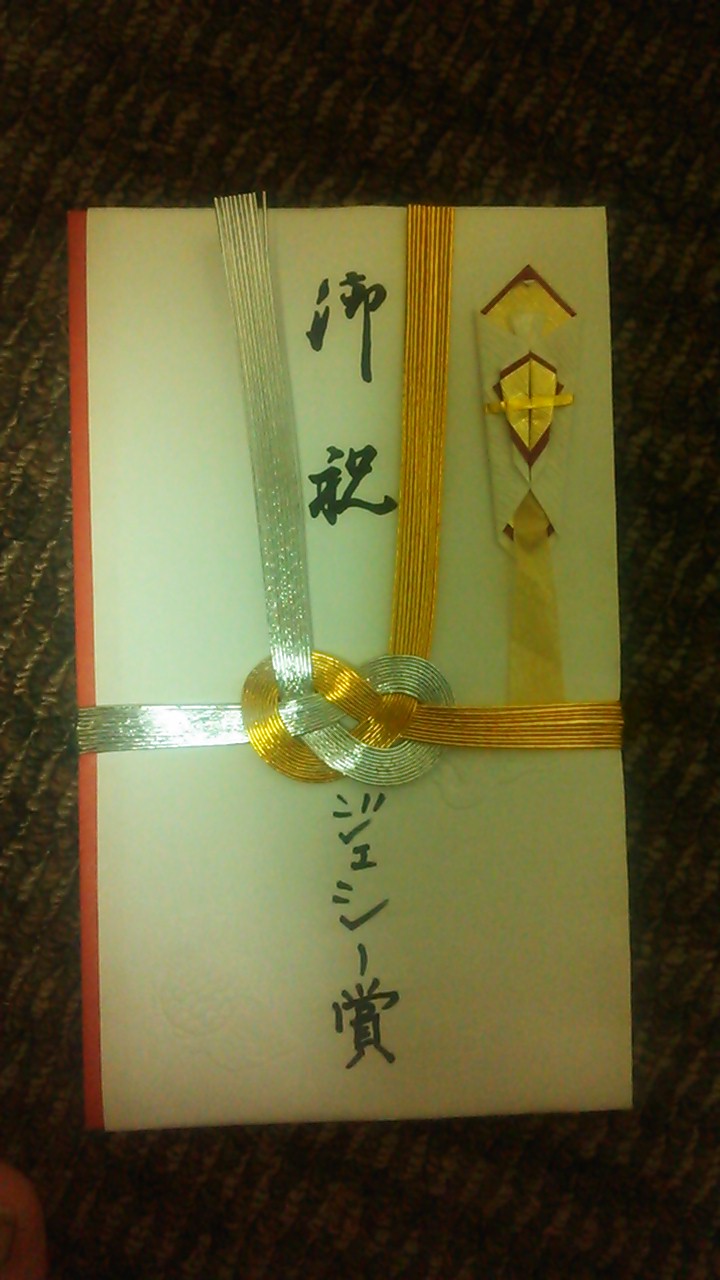 御祝
ジェシー賞